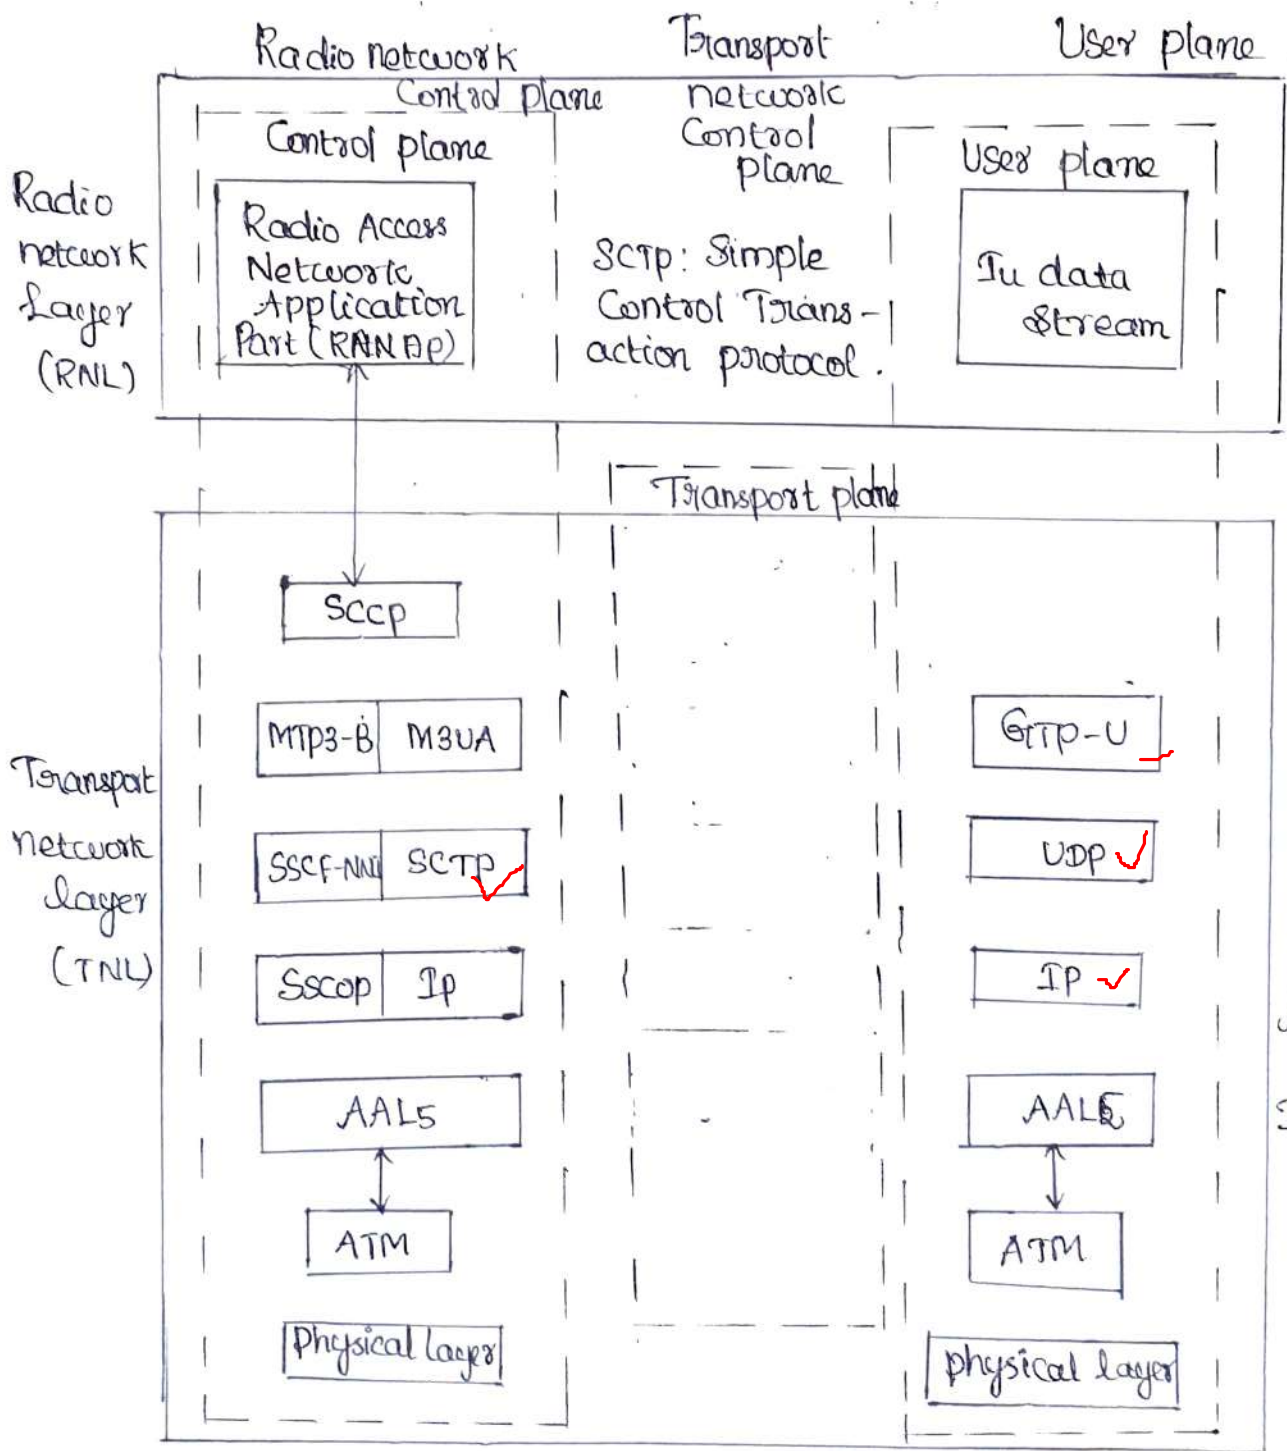 Radio network
Control plane
Transport
network
Control
plane
User plane
Radio
network
Layer
(RNL)
Control plane
Radio Access
Network
Application
Part (RANAP)
SCTP: Simple
Control Trans-
action protocol.
User plane
Iu data
stream
Transport plane
Transport
network
layer
(TNL)
SCCP
MTP3-B M3UA
SSCF-NNI SCTP
SSCOP IP
AAL5
ATM
Physical layer
GTP-U
UDP
IP
ATM
physical layer